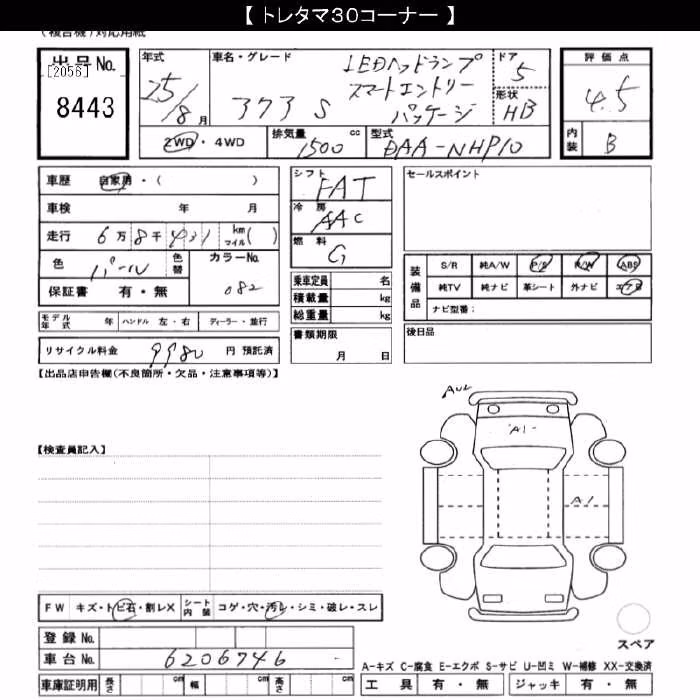 【 トレタマ30コーナー 】
(複合機)対応用紙
出品No.
[2056]
8443
年式 25/8月
車名・グレード
373 S
LEDヘッドランプ
スマートエントリー
パッケージ
ドア 5
形状 HB
評価点
4.5
内装 B
2WD・4WD
排気量 1500 cc
型式 DAA-NHP10
車歴 自家用・( )
車検 年 月
走行 6万8千431 km マイル( )
色 パール 色替
カラーNo. 082
保証書 有・無
シフト FAT
冷房 AAC
燃料 G
乗車定員 名
積載量 kg
総重量 kg
書類期限
月 日
セールスポイント
装備品
S/R 純A/W P/S P/W ABS
純TV 純ナビ 革シート 外ナビ エアB
ナビ型番:
後日品
モデル年式 年 ハンドル 左・右 ディーラー・並行
リサイクル料金 9980 円 預託済
【出品店申告欄(不良箇所・欠品・注意事項等)】
AU2
A1
A1
【検査員記入】
FW キズ・トビ石・割レX シート内装 コゲ・穴・汚レ・シミ・破レ・スレ
登録No.
車台No. 6206746
スペア
A-キズ C-腐食 E-エクボ S-サビ U-凹ミ W-補修 XX-交換済
車庫証明用 長さ cm 幅 cm 高さ cm
工具 有・無 ジャッキ 有・無